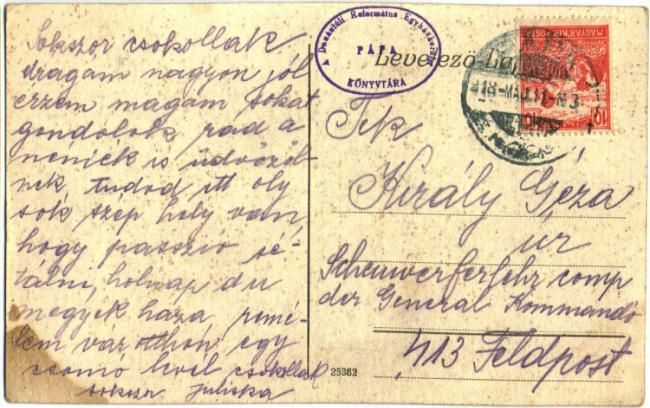 Sokszor csokollak
dragám nagyon jól
érzem magam sokat
gondolok rád a
neniék is üdvözöl
nek, tudod itt oly
sok szép hely van,
hogy passzió sé-
tálni, holnap du
megyek haza, remé-
lem vár otthon egy
csomó levél csokollak
sokszor Juliska
A Dunántúli Református Egyházkerület
PÁPA
KÖNYVTÁRA
Levelező-Lap
MAGYAR KIR. POSTA
10
Tek
Király Géza
úr
Scheuwerferfehr comp
der General Kommando
413 Feldpost
25362